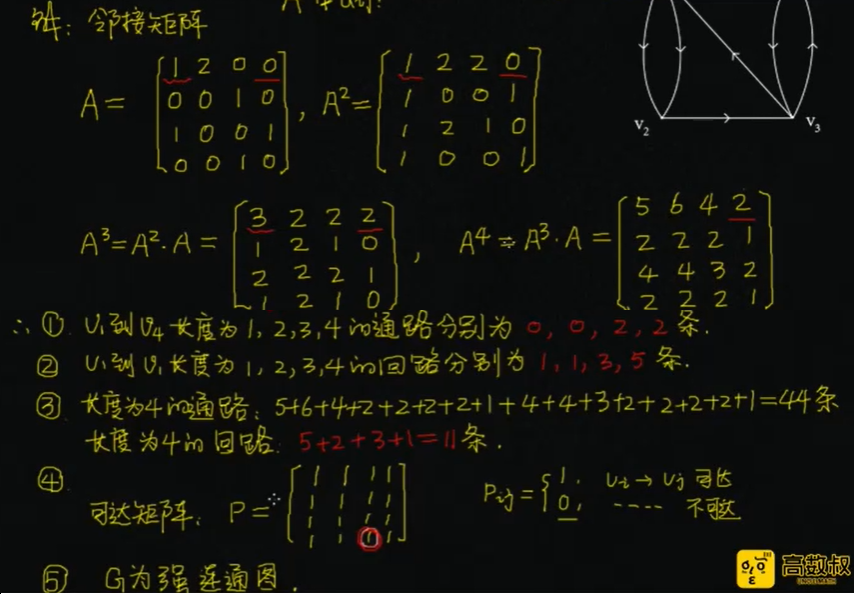 解：邻接矩阵
A = [1 2 0 0; 0 0 1 0; 1 0 0 1; 0 0 1 0], A² = [1 2 2 0; 1 0 0 1; 1 2 1 0; 1 0 0 1]
v₂ v₃
A³=A²·A = [3 2 2 2; 1 2 1 0; 2 2 2 1; 1 2 1 0], A⁴=A³·A = [5 6 4 2; 2 2 2 1; 4 4 3 2; 2 2 2 1]
∴ ① v₁到v₄长度为1,2,3,4的通路分别为 0, 0, 2, 2 条.
② v₁到v₁长度为1,2,3,4的回路分别为 1, 1, 3, 5 条.
③ 长度为4的通路: 5+6+4+2+2+2+2+1+4+4+3+2+2+2+2+1=44条
长度为4的回路: 5+2+3+1=11条.
④
可达矩阵: P= [1 1 1 1; 1 1 1 1; 1 1 1 1; 1 1 1 1] Pij={1, vi→vj 可达
0, ---- 不可达
⑤ G为强连通图.
高数叔
UNCLE MATH